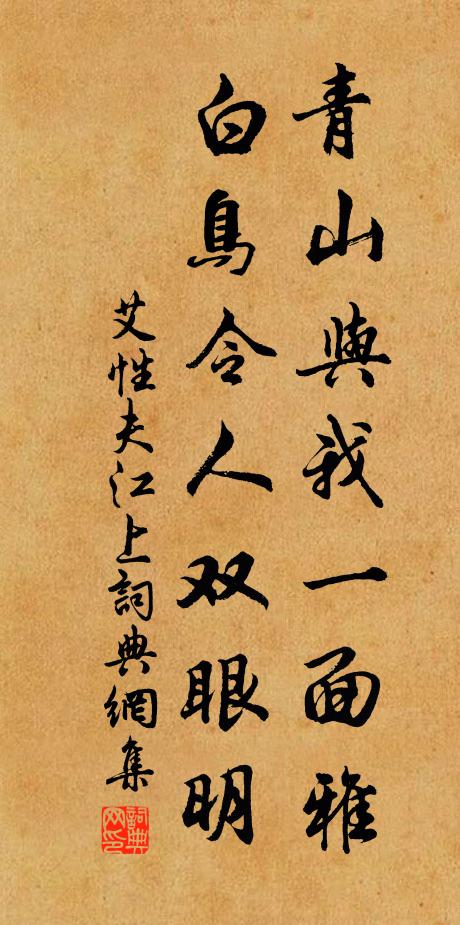 青山與我一面雅
白鳥令人双眼明
艾性夫江上詞典網集
詞典网印